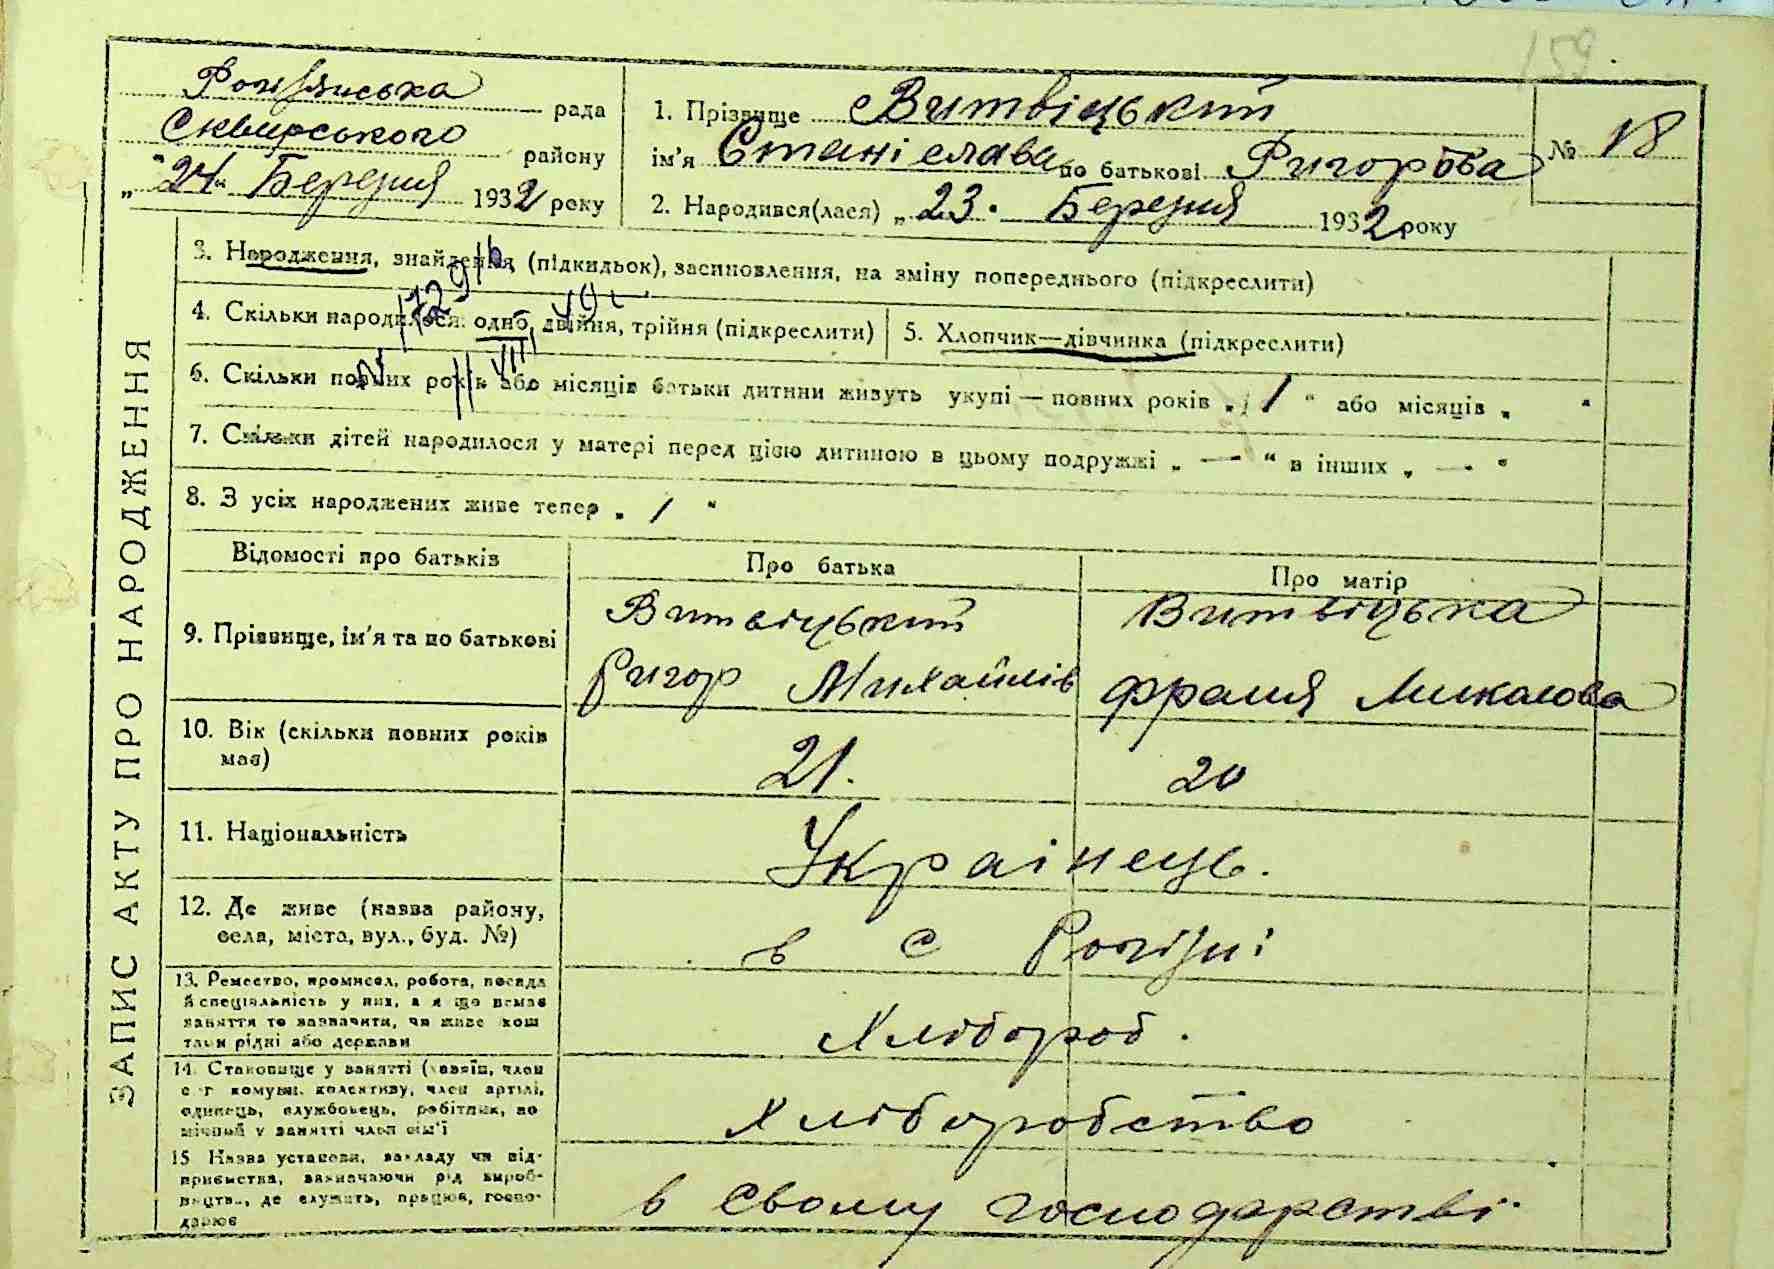 159
Рогізнська рада
Сквирського району
„24“ Березня 1932 року
1. Прізвище Витвіцький
ім'я Станіслава по батькові Ригорова
2. Народився(лася) „23. Березня 1932 року
№ 18
ЗАПИС АКТУ ПРО НАРОДЖЕННЯ
3. Народження, знайдення (підкидьок), засиновлення, на зміну попереднього (підкреслити)
4. Скільки народилося: одно, двійня, трійня (підкреслити)
5. Хлопчик—дівчинка (підкреслити)
6. Скільки повних років або місяців батьки дитини живуть укупі — повних років „1“ або місяців „ “
7. Скільки дітей народилося у матері перед цією дитиною в цьому подружжі „ — “ в інших „ — “
8. З усіх народжених живе тепер „ 1 “
Відомості про батьків
Про батька
Про матір
9. Прізвище, ім'я та по батькові
Витвіцький
Ригор Михайлів
Витвіцька
Франя Миколова
10. Вік (скільки повних років
має)
21.
20
11. Національність
Украінець.
12. Де живе (назва району,
села, міста, вул., буд. №)
в с Рогізні
13. Ремество, промисел, робота, посада
й спеціяльність у них, а якщо немає
заняття то зазначити, чи живе кош
тами рідні або держави
Хлібороб.
14. Становище у занятті (хазяїн, член
с-г комуни, колективу, член артілі,
одинець, службовець, робітник, по
мічний у занятті член сім'ї
Хліборобство
15 Назва установи, закладу чи під-
приємства, зазначаючи рід вироб-
ництв., де служить, працює, госпо-
дарює
в свому господарстві